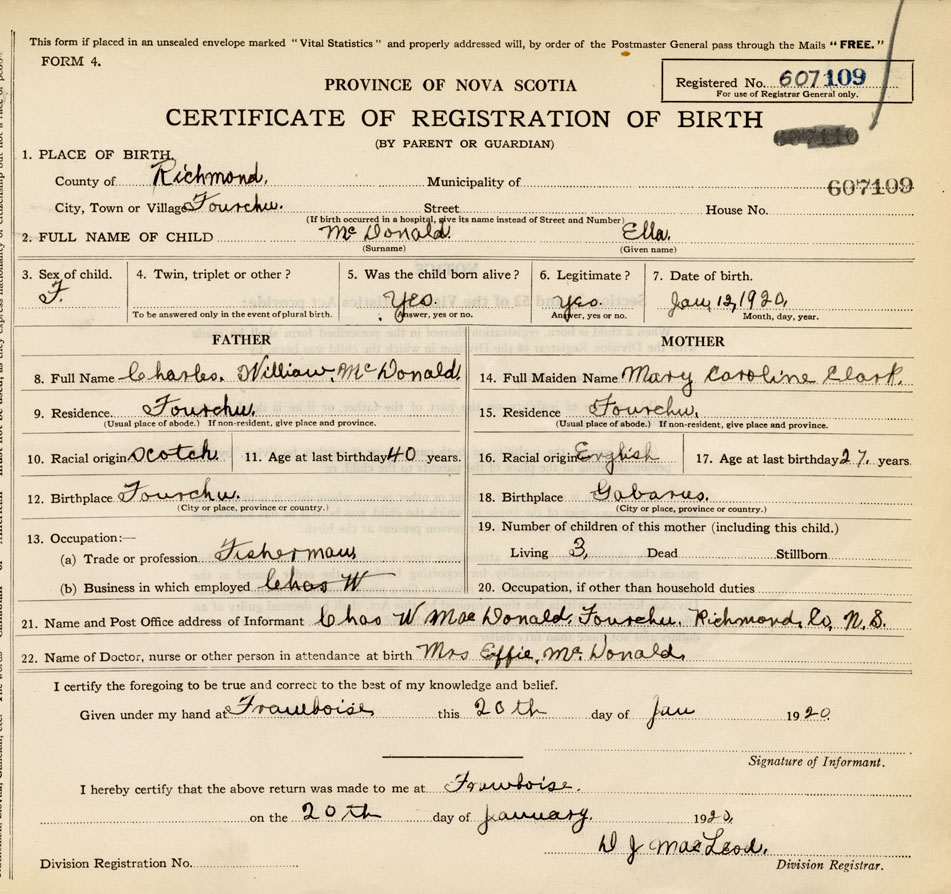 This form if placed in an unsealed envelope marked "Vital Statistics" and properly addressed will, by order of the Postmaster General pass through the Mails "FREE."
FORM 4.
Registered No. 607109
For use of Registrar General only.
PROVINCE OF NOVA SCOTIA
CERTIFICATE OF REGISTRATION OF BIRTH
(BY PARENT OR GUARDIAN)
1. PLACE OF BIRTH,
County of Richmond. Municipality of
607109
City, Town or Village Fourchu. Street House No.
(If birth occurred in a hospital, give its name instead of Street and Number)
2. FULL NAME OF CHILD Mc Donald Ella.
(Surname) (Given name)
3. Sex of child. 4. Twin, triplet or other? 5. Was the child born alive? 6. Legitimate? 7. Date of birth.
F. Yes. Yes. Jan, 12, 1920,
To be answered only in the event of plural birth. Answer, yes or no. Answer, yes or no. Month, day, year.
FATHER MOTHER
8. Full Name Charles. William. Mc Donald. 14. Full Maiden Name Mary Caroline Clark.
9. Residence. Fourchu. 15. Residence Fourchu.
(Usual place of abode.) If non-resident, give place and province. (Usual place of abode.) If non-resident, give place and province.
10. Racial origin Scotch 11. Age at last birthday 40 years. 16. Racial origin English 17. Age at last birthday 27. years.
12. Birthplace Fourchu. 18. Birthplace Gabarus.
(City or place, province or country.) (City or place, province or country.)
13. Occupation:— 19. Number of children of this mother (including this child.)
(a) Trade or profession Fisherman Living 3, Dead Stillborn
(b) Business in which employed Chas W 20. Occupation, if other than household duties
21. Name and Post Office address of Informant Chas W Mac Donald, Fourchu, Richmond, Co, N.S.
22. Name of Doctor, nurse or other person in attendance at birth Mrs Effie, Mc Donald,
I certify the foregoing to be true and correct to the best of my knowledge and belief.
Given under my hand at Framboise this 20th day of Jan 1920.
Signature of Informant.
I hereby certify that the above return was made to me at Framboise.
on the 20th day of January. 1920,
D J MacLeod.
Division Registration No. Division Registrar.